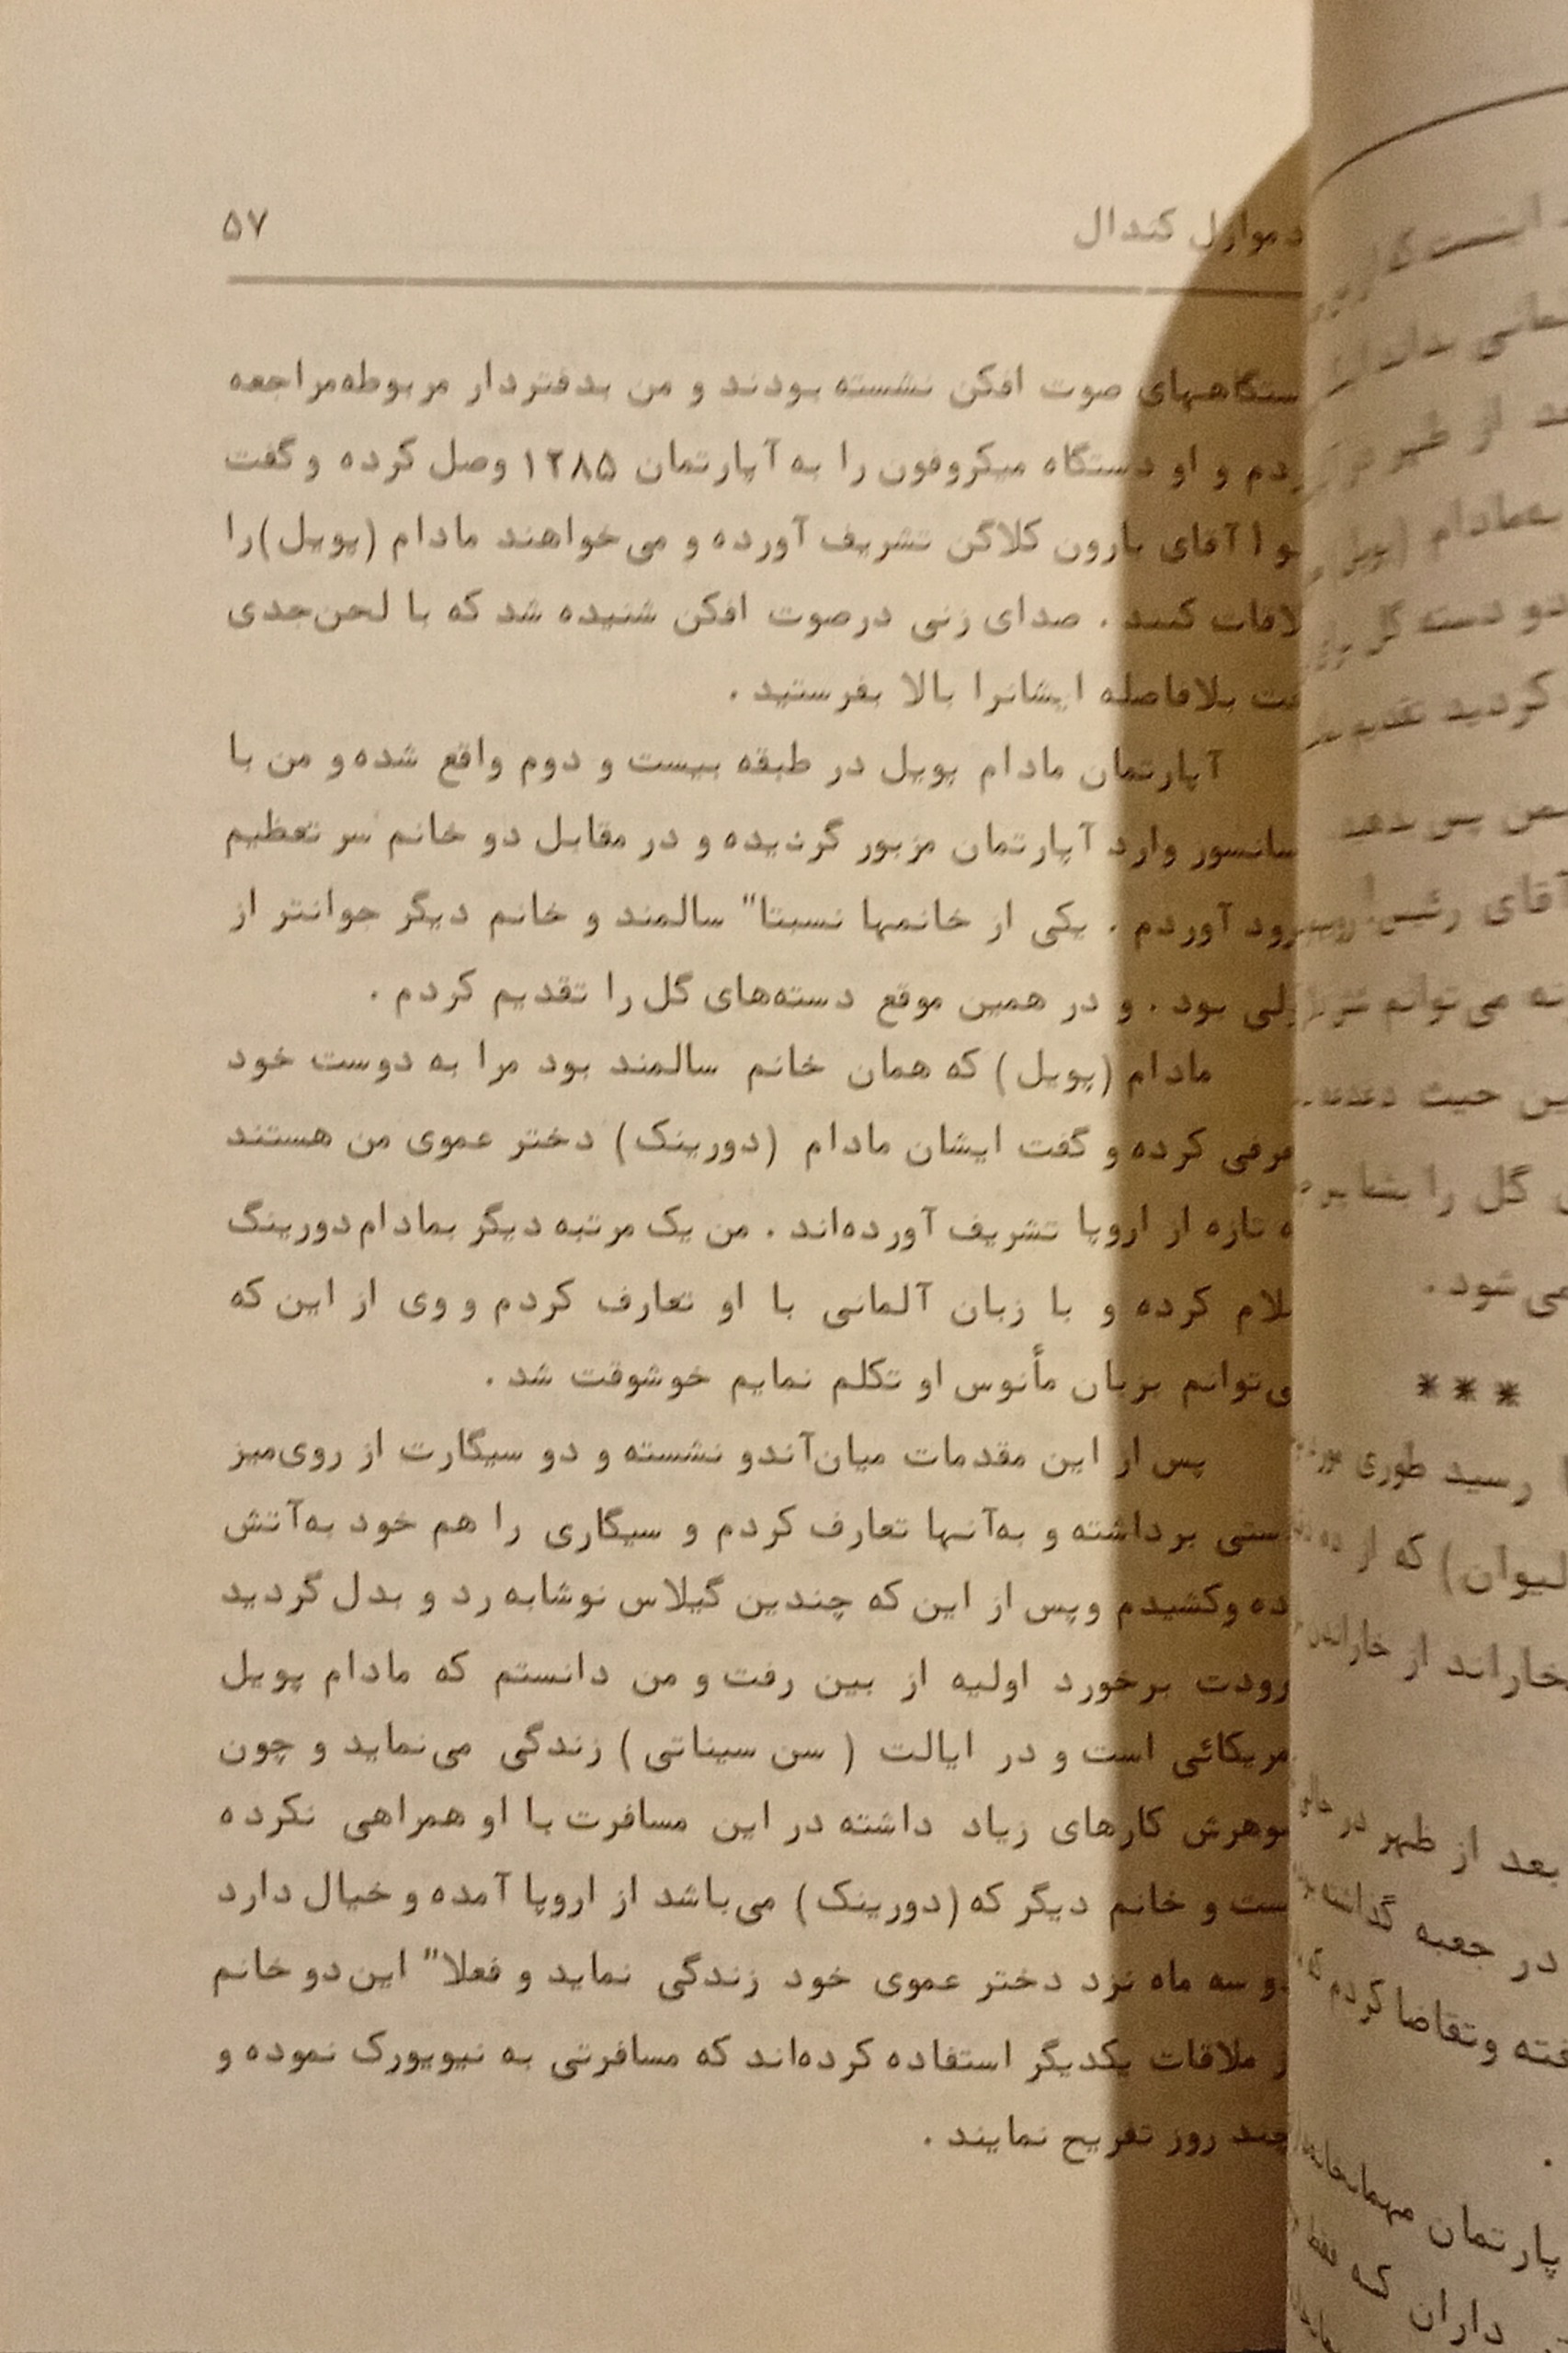 دموازل کندال ۵۷
ستگاههای صوت افکن نشسته بودند و من بدفتردار مربوطه‌مراجعه
ردم و او دستگاه میکروفون را به آپارتمان ۱۲۸۵ وصل کرده و گفت
آقای بارون کلاگن تشریف آورده و می‌خواهند مادام (پویل) را
لاقات کنند . صدای زنی درصوت افکن شنیده شد که با لحن‌جدی
بلافاصله ایشانرا بالا بفرستید .
آپارتمان مادام پویل در طبقه بیست و دوم واقع شده و من با
سانسور وارد آپارتمان مزبور گردیده و در مقابل دو خانم سر تعظیم
رود آوردم . یکی از خانمها نسبتا" سالمند و خانم دیگر جوانتر از
لی بود . و در همین موقع دسته‌های گل را تقدیم کردم .
مادام (پویل) که همان خانم سالمند بود مرا به دوست خود
عرفی کرده و گفت ایشان مادام (دورینک) دختر عموی من هستند
ه تازه از اروپا تشریف آورده‌اند . من یک مرتبه دیگر بمادام دورینگ
لام کرده و با زبان آلمانی با او تعارف کردم و وی از این که
ی‌توانم بزبان مأنوس او تکلم نمایم خوشوقت شد .
پس از این مقدمات میان‌آندو نشسته و دو سیگارت از روی‌میز
ستی برداشته و به‌آنها تعارف کردم و سیگاری را هم خود به‌آتش
ده وکشیدم وپس از این که چندین گیلاس نوشابه رد و بدل گردید
رودت برخورد اولیه از بین رفت و من دانستم که مادام پویل
مریکائی است و در ایالت ( سن سیناتی ) زندگی می‌نماید و چون
وهرش کارهای زیاد داشته در این مسافرت با او همراهی نکرده
ست و خانم دیگر که (دورینک) می‌باشد از اروپا آمده و خیال دارد
و سه ماه نزد دختر عموی خود زندگی نماید و فعلا" این‌دو خانم
ز ملاقات یکدیگر استفاده کرده‌اند که مسافرتی به نیویورک نموده و
چند روز تفریح نمایند .